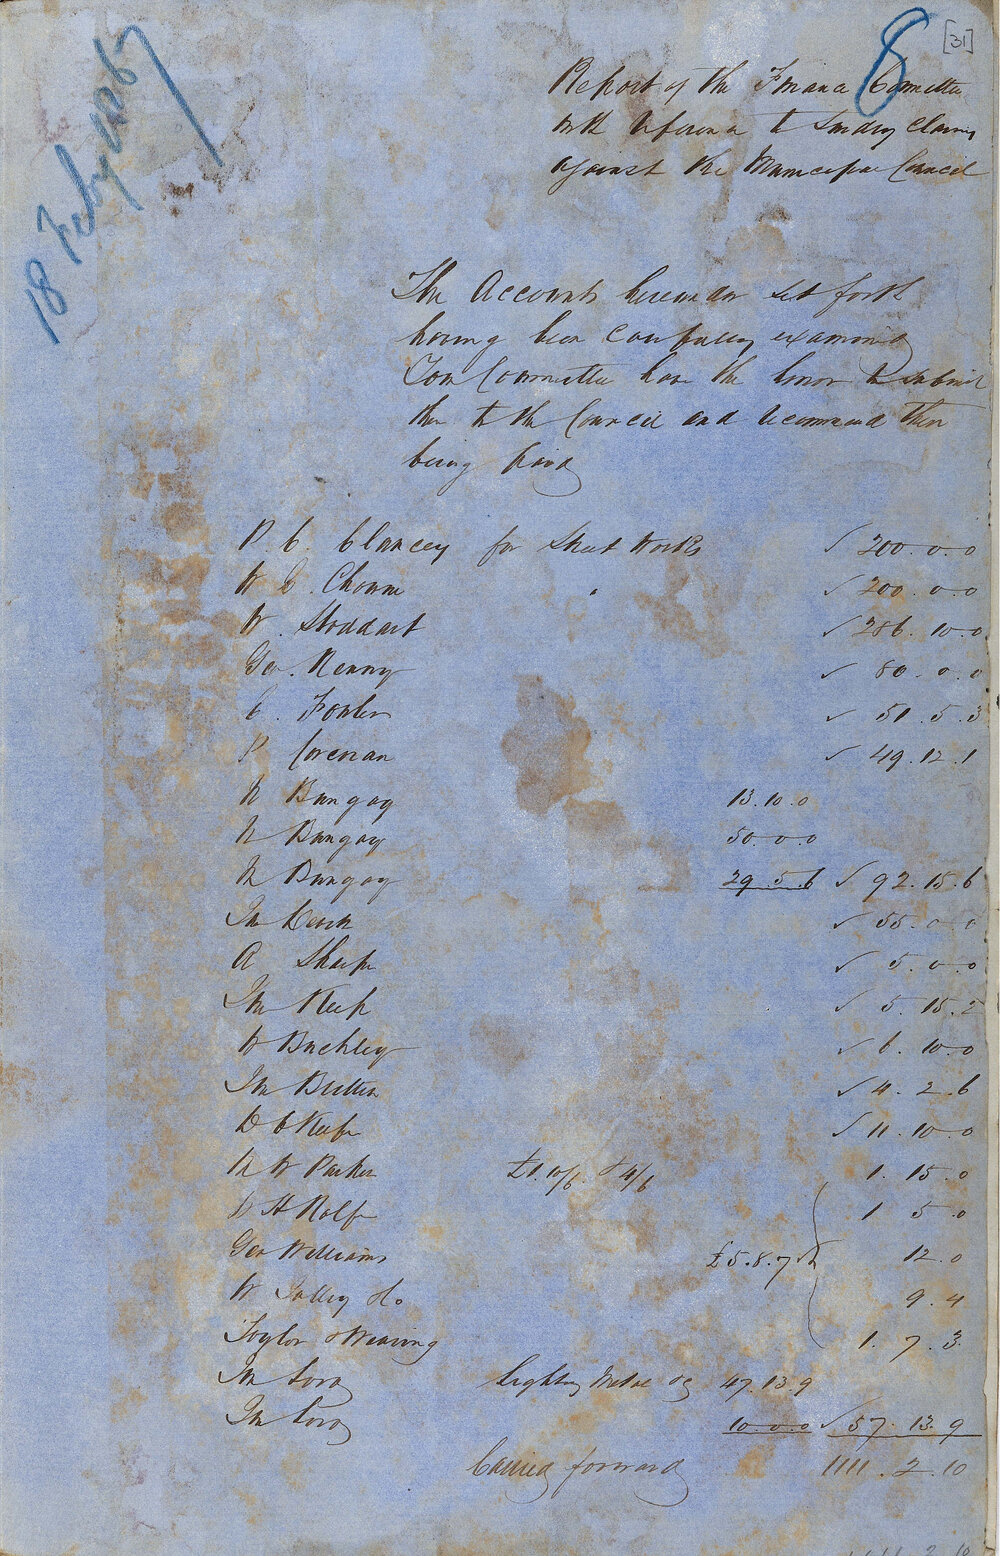 [31]
8
18 Feby 1867
Report of the Finance Committee
with reference to Sundry Claims
against the Municipal Council
The Accounts hereunder set forth
having been carefully examined
Your Committee have the honor to submit
them to the Council and recommend their
being paid
P. C. Clancey for Street Works √ 200.0.0
W D. Chown " √ 200.0.0
W. Stoddart √ 286.10.0
Geo. Kenny √ 80.0.0
C. Fowler √ 51.5.3
P Corcoran √ 49.12.1
N Bungay 13.10.0
N Bungay 50.0.0
N Bungay 29.5.6 √ 92.15.6
Jn √ 55.0.0
A Sharpe √ 5.0.0
Jn Keep √ 5.15.2
W Buckley √ 6.10.0
Jn √ 4.2.6
D O'Keefe √ 11.10.0
M W Parker £1.10/6 & 4/6 1.15.0
D H Rolfe 1 5.0
Geo Williams £5.8.7 √ 12.0
W Salley &o 9.4
Taylor & Wearing 1.7.3
Jn Lord Lighting 47.13.9
Jn Lord 10.0.0 √ 57.13.9
Carried forward 1111.2.10